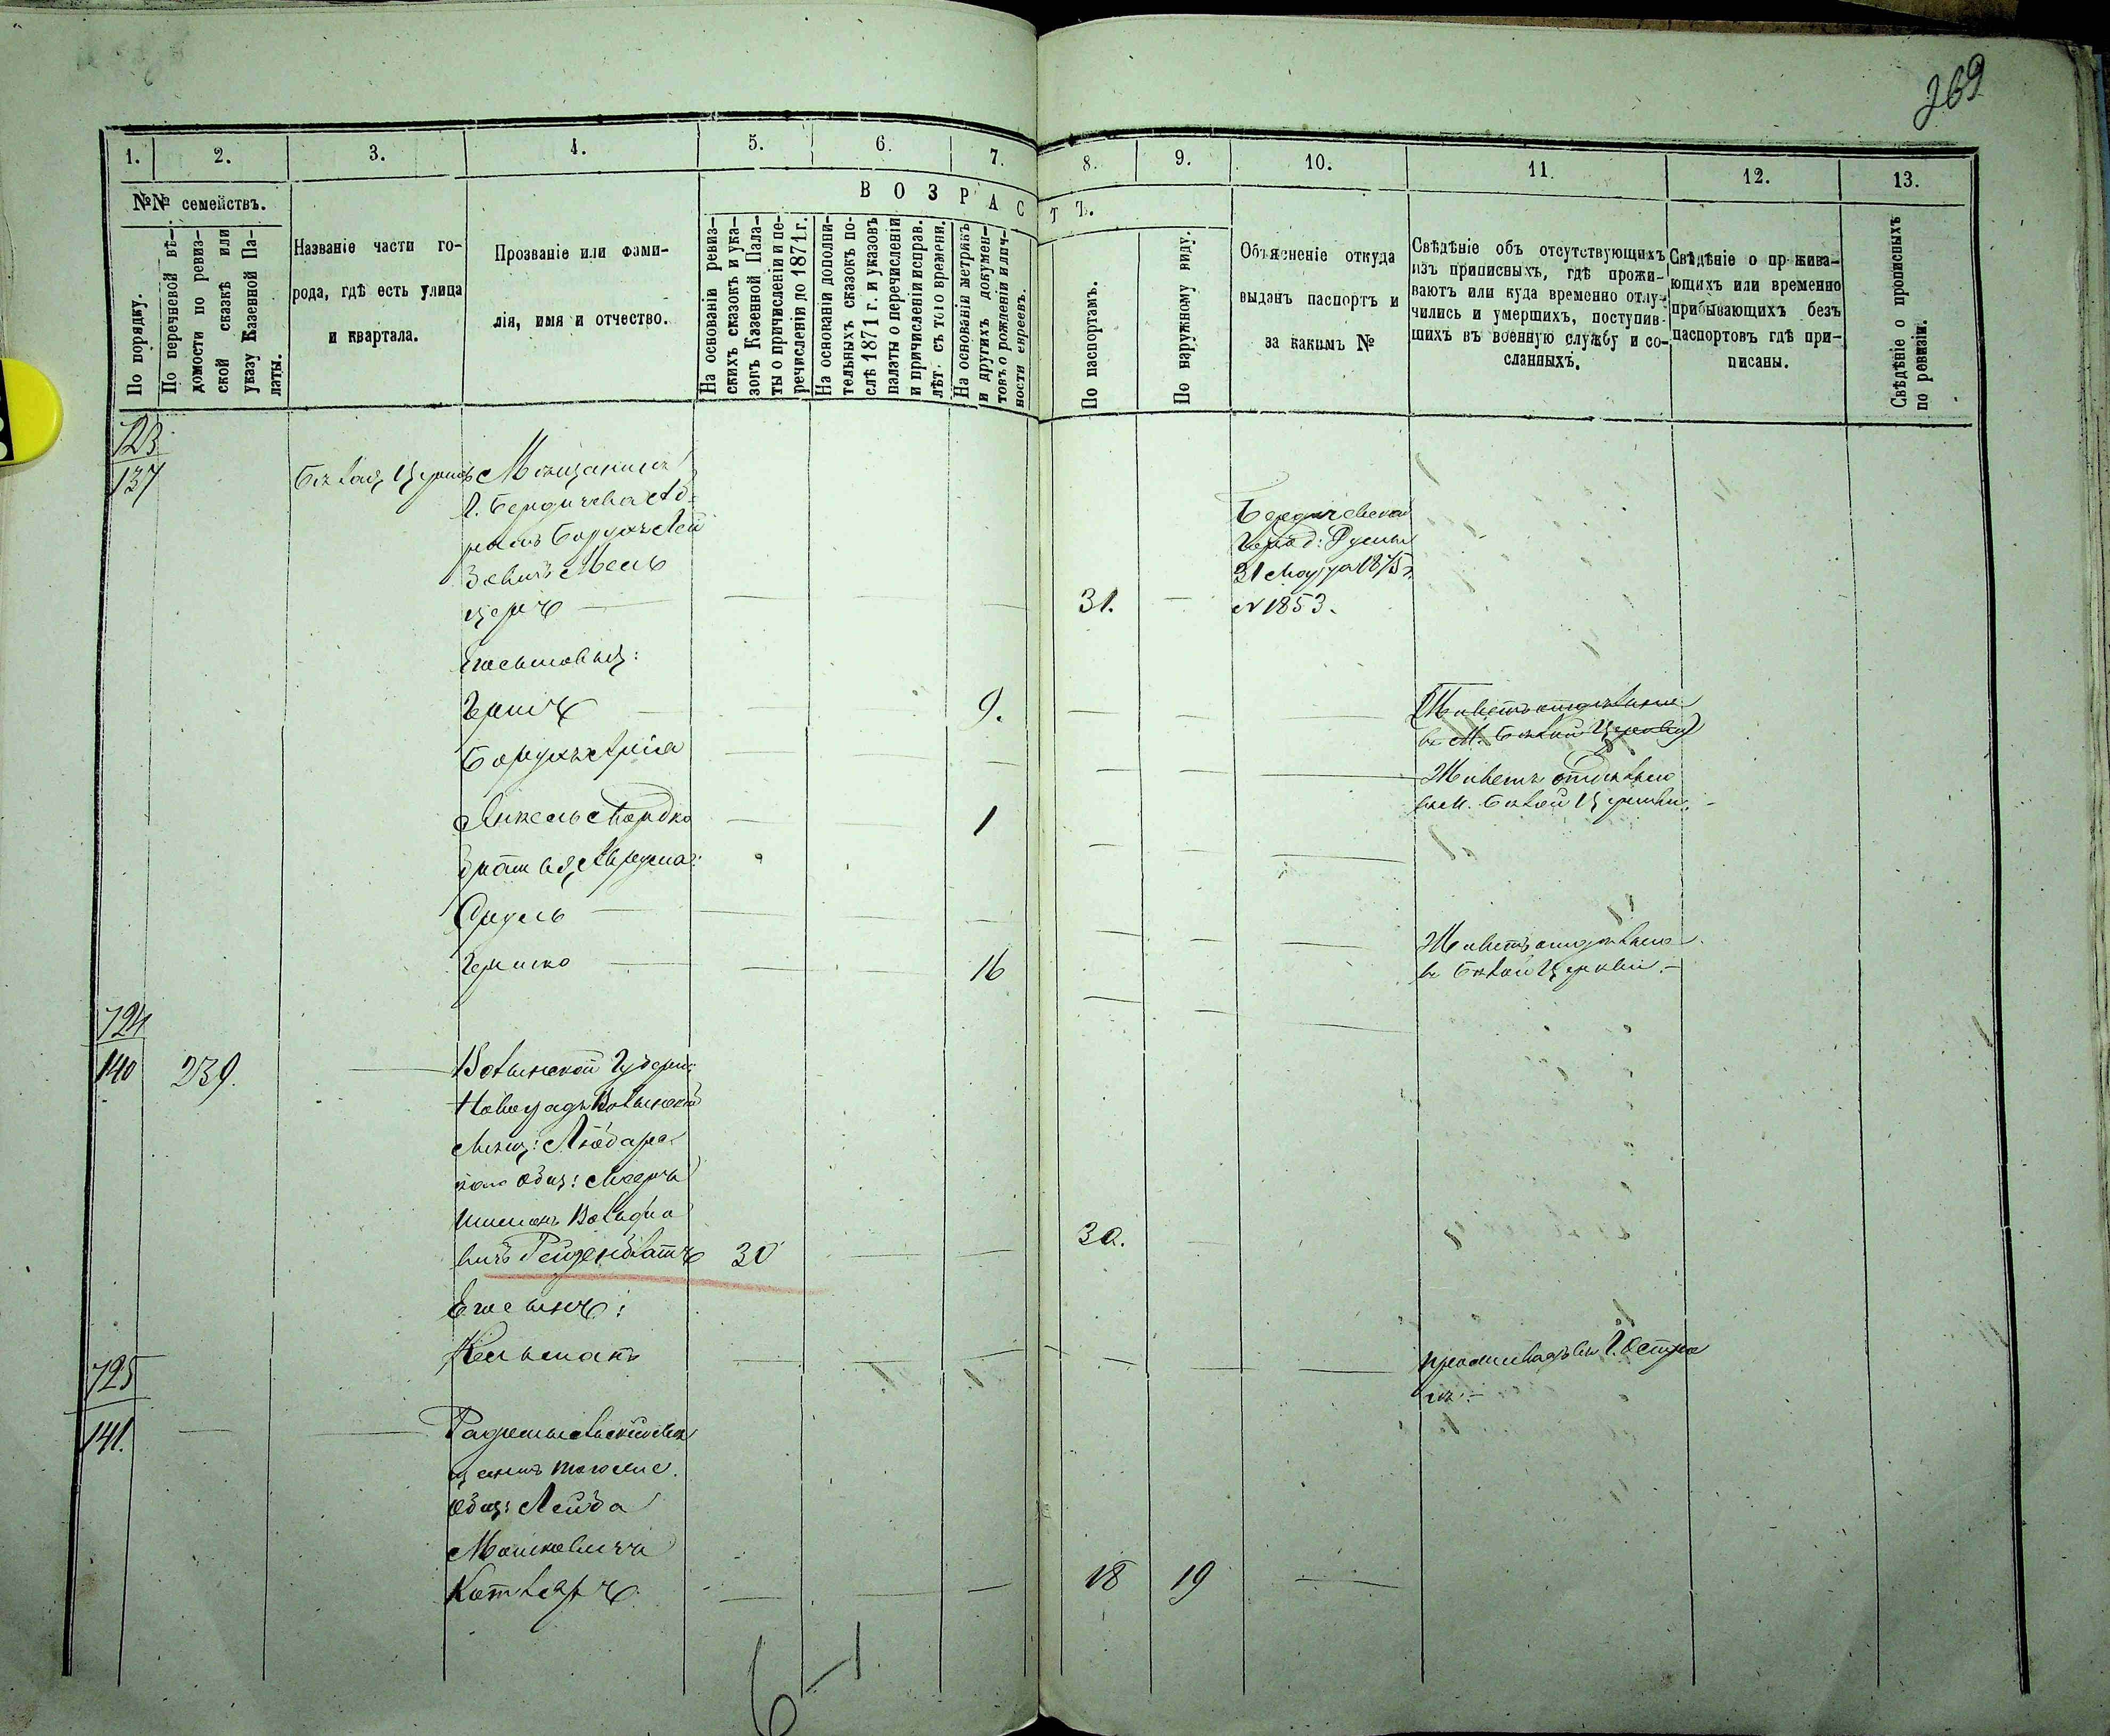 269
1. 2. 3. 4. 5. 6. 7. 8. 9. 10. 11. 12. 13.
№№ семействъ.
ВОЗРАСТЪ.
По порядку.
По перечневой вѣ-
домости по ревиз-
ской сказкѣ или
указу Казенной Па-
латы.
Названіе части го-
рода, гдѣ есть улица
и квартала.
Прозваніе или фами-
лія, имя и отчество.
На основаніи ревиз-
скихъ сказокъ и ука-
зовъ Казенной Пала-
ты о причисленіи и пе-
речисленіи до 1871 г.
На основаніи дополни-
тельныхъ сказокъ по-
слѣ 1871 г. и указовъ
палаты о перечисленіи
и причисленіи исправ.
лѣт. съ того времени.
На основаніи метрикъ
и другихъ докумен-
товъ о рожденіи и лич-
ности евреевъ.
По паспортамъ.
По наружному виду.
Объясненіе откуда
выданъ паспортъ и
за какимъ №
Свѣдѣніе объ отсутствующихъ
изъ приписныхъ, гдѣ прожи-
ваютъ или куда временно отлу-
чились и умершихъ, поступив-
шихъ въ военную службу и со-
сланныхъ.
Свѣдѣніе о прожива-
ющихъ или временно
прибывающихъ безъ
паспортовъ гдѣ при-
писаны.
Свѣдѣніе о прописныхъ
по ревизіи.
723
137 Бѣлая Церковь Мѣщанинъ
г. Бердичева Аб-
рамъ Борухъ Лей
Бердичевской
Город: Думы
31 1875 г.
31. — № 1853.
Его сыновья:
Гершъ 9.
Живетъ отдѣльно
въ м. Бѣлой Церкви
Борухъ
Живетъ отдѣльно
въ м. Бѣлой Церкви.
Янкель Мордко 1
братья Абрума:
Сруль
Живетъ отдѣльно
въ Бѣлой Церкви.
Гершко 16
724
140 239. Волынской Губерн:
Новоградъ Волынскій
мѣщ: Любарс
каго общ:
Шимонъ Вольфо
вичъ 30 30.
Его сынъ:
Кельманъ
проживаетъ въ г. Остро
гѣ.
725
141. Радомысльскій мѣ
щанинъ того же
общ: Лейба
Мошковичъ
Котляръ 18 19
6-1